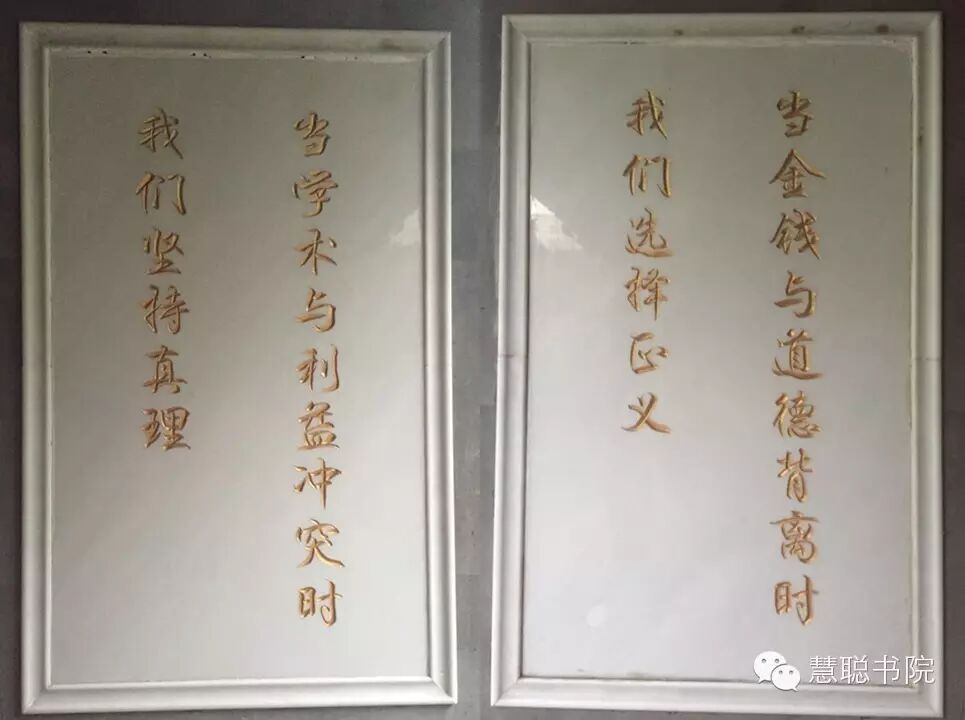 当金钱与道德背离时
我们选择正义
当学术与利益冲突时
我们坚持真理
慧聪书院